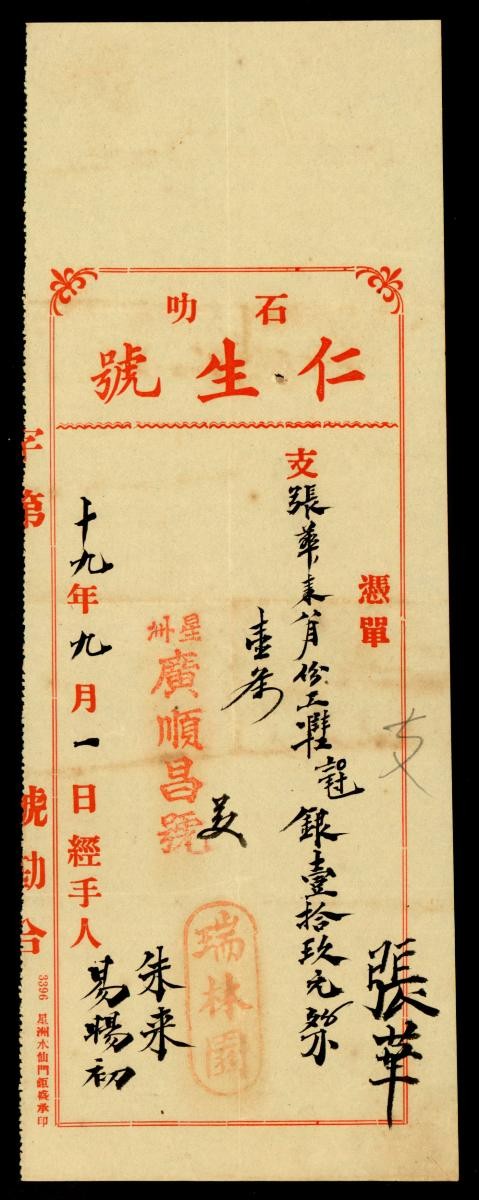 石叻
仁生號
憑單
支張華來八月份工
銀壹拾玖元
張華
支
星洲
廣順昌號
瑞林園
朱来
易暘初
十九年九月一日經手人
字第 號勘合
3396 星洲水仙門鉅葢承印